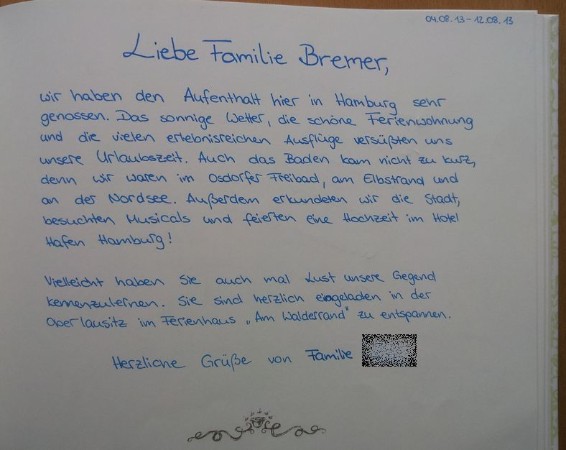 04.08.13 - 12.08.13
Liebe Familie Bremer,
wir haben den Aufenthalt hier in Hamburg sehr
genossen. Das sonnige Wetter, die schöne Ferienwohnung
und die vielen erlebnisreichen Ausflüge versüßten uns
unsere Urlaubszeit. Auch das Baden kam nicht zu kurz,
denn wir waren im Osdorfer Freibad, am Elbstrand und
an der Nordsee. Außerdem erkundeten wir die Stadt,
besuchten Musicals und feierten eine Hochzeit im Hotel
Hafen Hamburg!
Vielleicht haben Sie auch mal Lust unsere Gegend
kennenzulernen. Sie sind herzlich eingeladen in der
Oberlausitz im Ferienhaus „Am Waldesrand" zu entspannen.
Herzliche Grüße von Familie